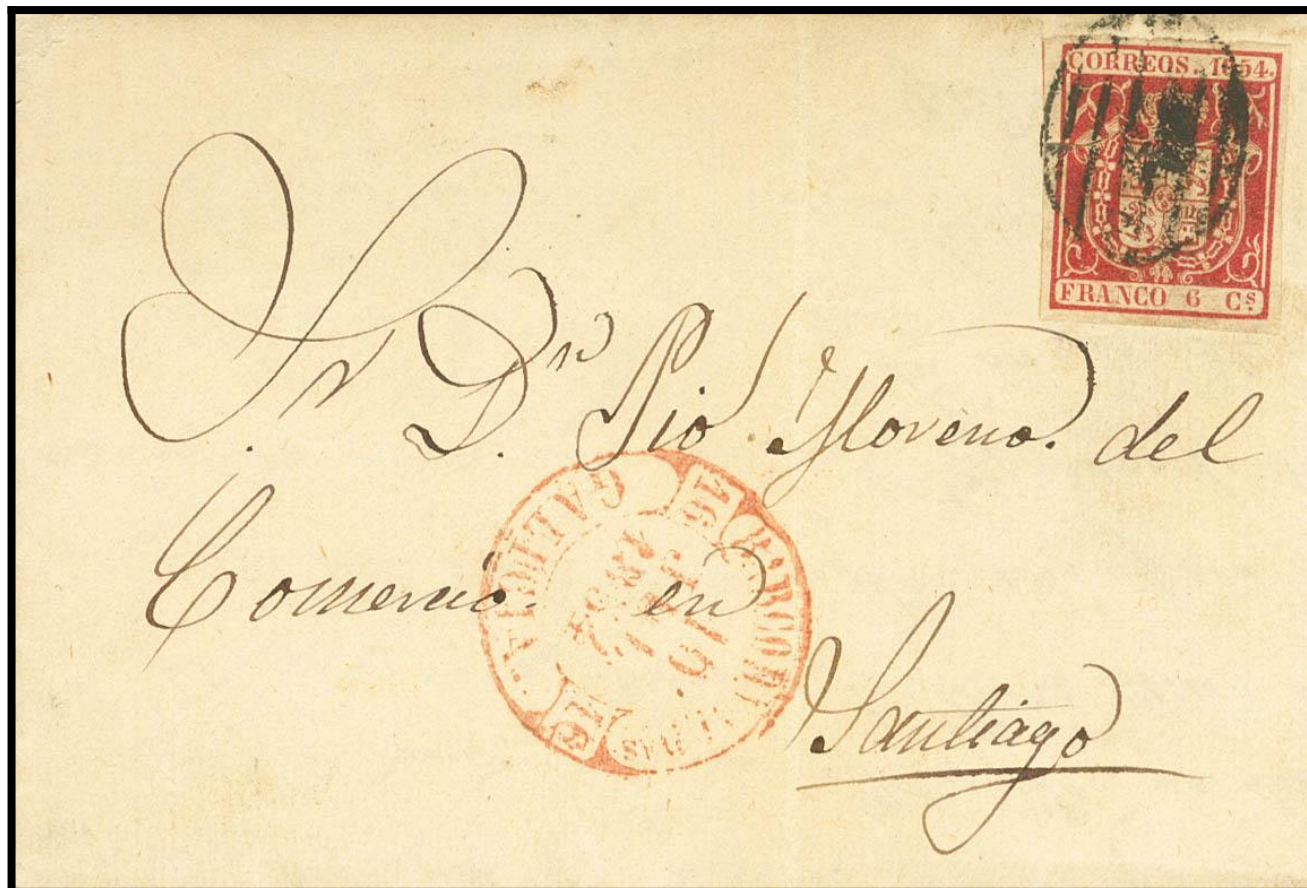 CORREOS. 1854.
FRANCO 6 Cs.
Sr. Dn. Pio Moreno. del
Comercio. en
Santiago
GALICIA.
16
1854